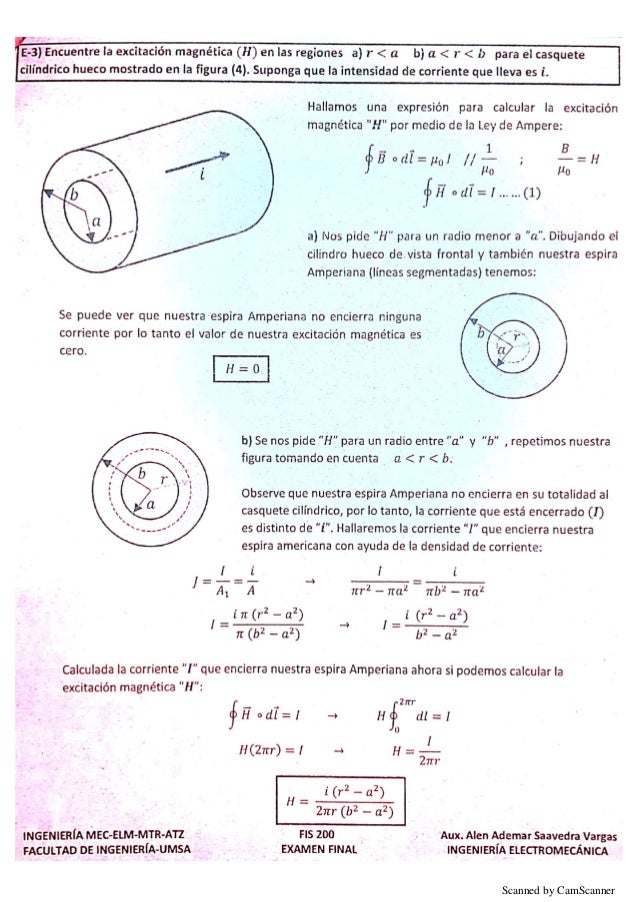 E-3) Encuentre la excitación magnética (H) en las regiones a) r < a b) a < r < b para el casquete
cilíndrico hueco mostrado en la figura (4). Suponga que la intensidad de corriente que lleva es i.
Hallamos una expresión para calcular la excitación
magnética "H" por medio de la Ley de Ampere:
∮ B⃗ ∘ dl⃗ = μ₀ I // 1/μ₀ ; B/μ₀ = H
∮ H⃗ ∘ dl⃗ = I ...... (1)
b
a
i
a) Nos pide "H" para un radio menor a "a". Dibujando el
cilindro hueco de vista frontal y también nuestra espira
Amperiana (líneas segmentadas) tenemos:
Se puede ver que nuestra espira Amperiana no encierra ninguna
corriente por lo tanto el valor de nuestra excitación magnética es
cero.
H = 0
b
r
a
b) Se nos pide "H" para un radio entre "a" y "b" , repetimos nuestra
figura tomando en cuenta a < r < b.
b
r
a
Observe que nuestra espira Amperiana no encierra en su totalidad al
casquete cilíndrico, por lo tanto, la corriente que está encerrado (I)
es distinto de "i". Hallaremos la corriente "I" que encierra nuestra
espira americana con ayuda de la densidad de corriente:
J = I/A₁ = i/A → I/(πr² − πa²) = i/(πb² − πa²)
I = i π (r² − a²)/π (b² − a²) → I = i (r² − a²)/(b² − a²)
Calculada la corriente "I" que encierra nuestra espira Amperiana ahora si podemos calcular la
excitación magnética "H":
∮ H⃗ ∘ dl⃗ = I → H ∮₀^2πr dl = I
H(2πr) = I → H = I/2πr
H = i (r² − a²)/2πr (b² − a²)
INGENIERÍA MEC-ELM-MTR-ATZ FIS 200 Aux. Alen Ademar Saavedra Vargas
FACULTAD DE INGENIERÍA-UMSA EXAMEN FINAL INGENIERÍA ELECTROMECÁNICA
Scanned by CamScanner